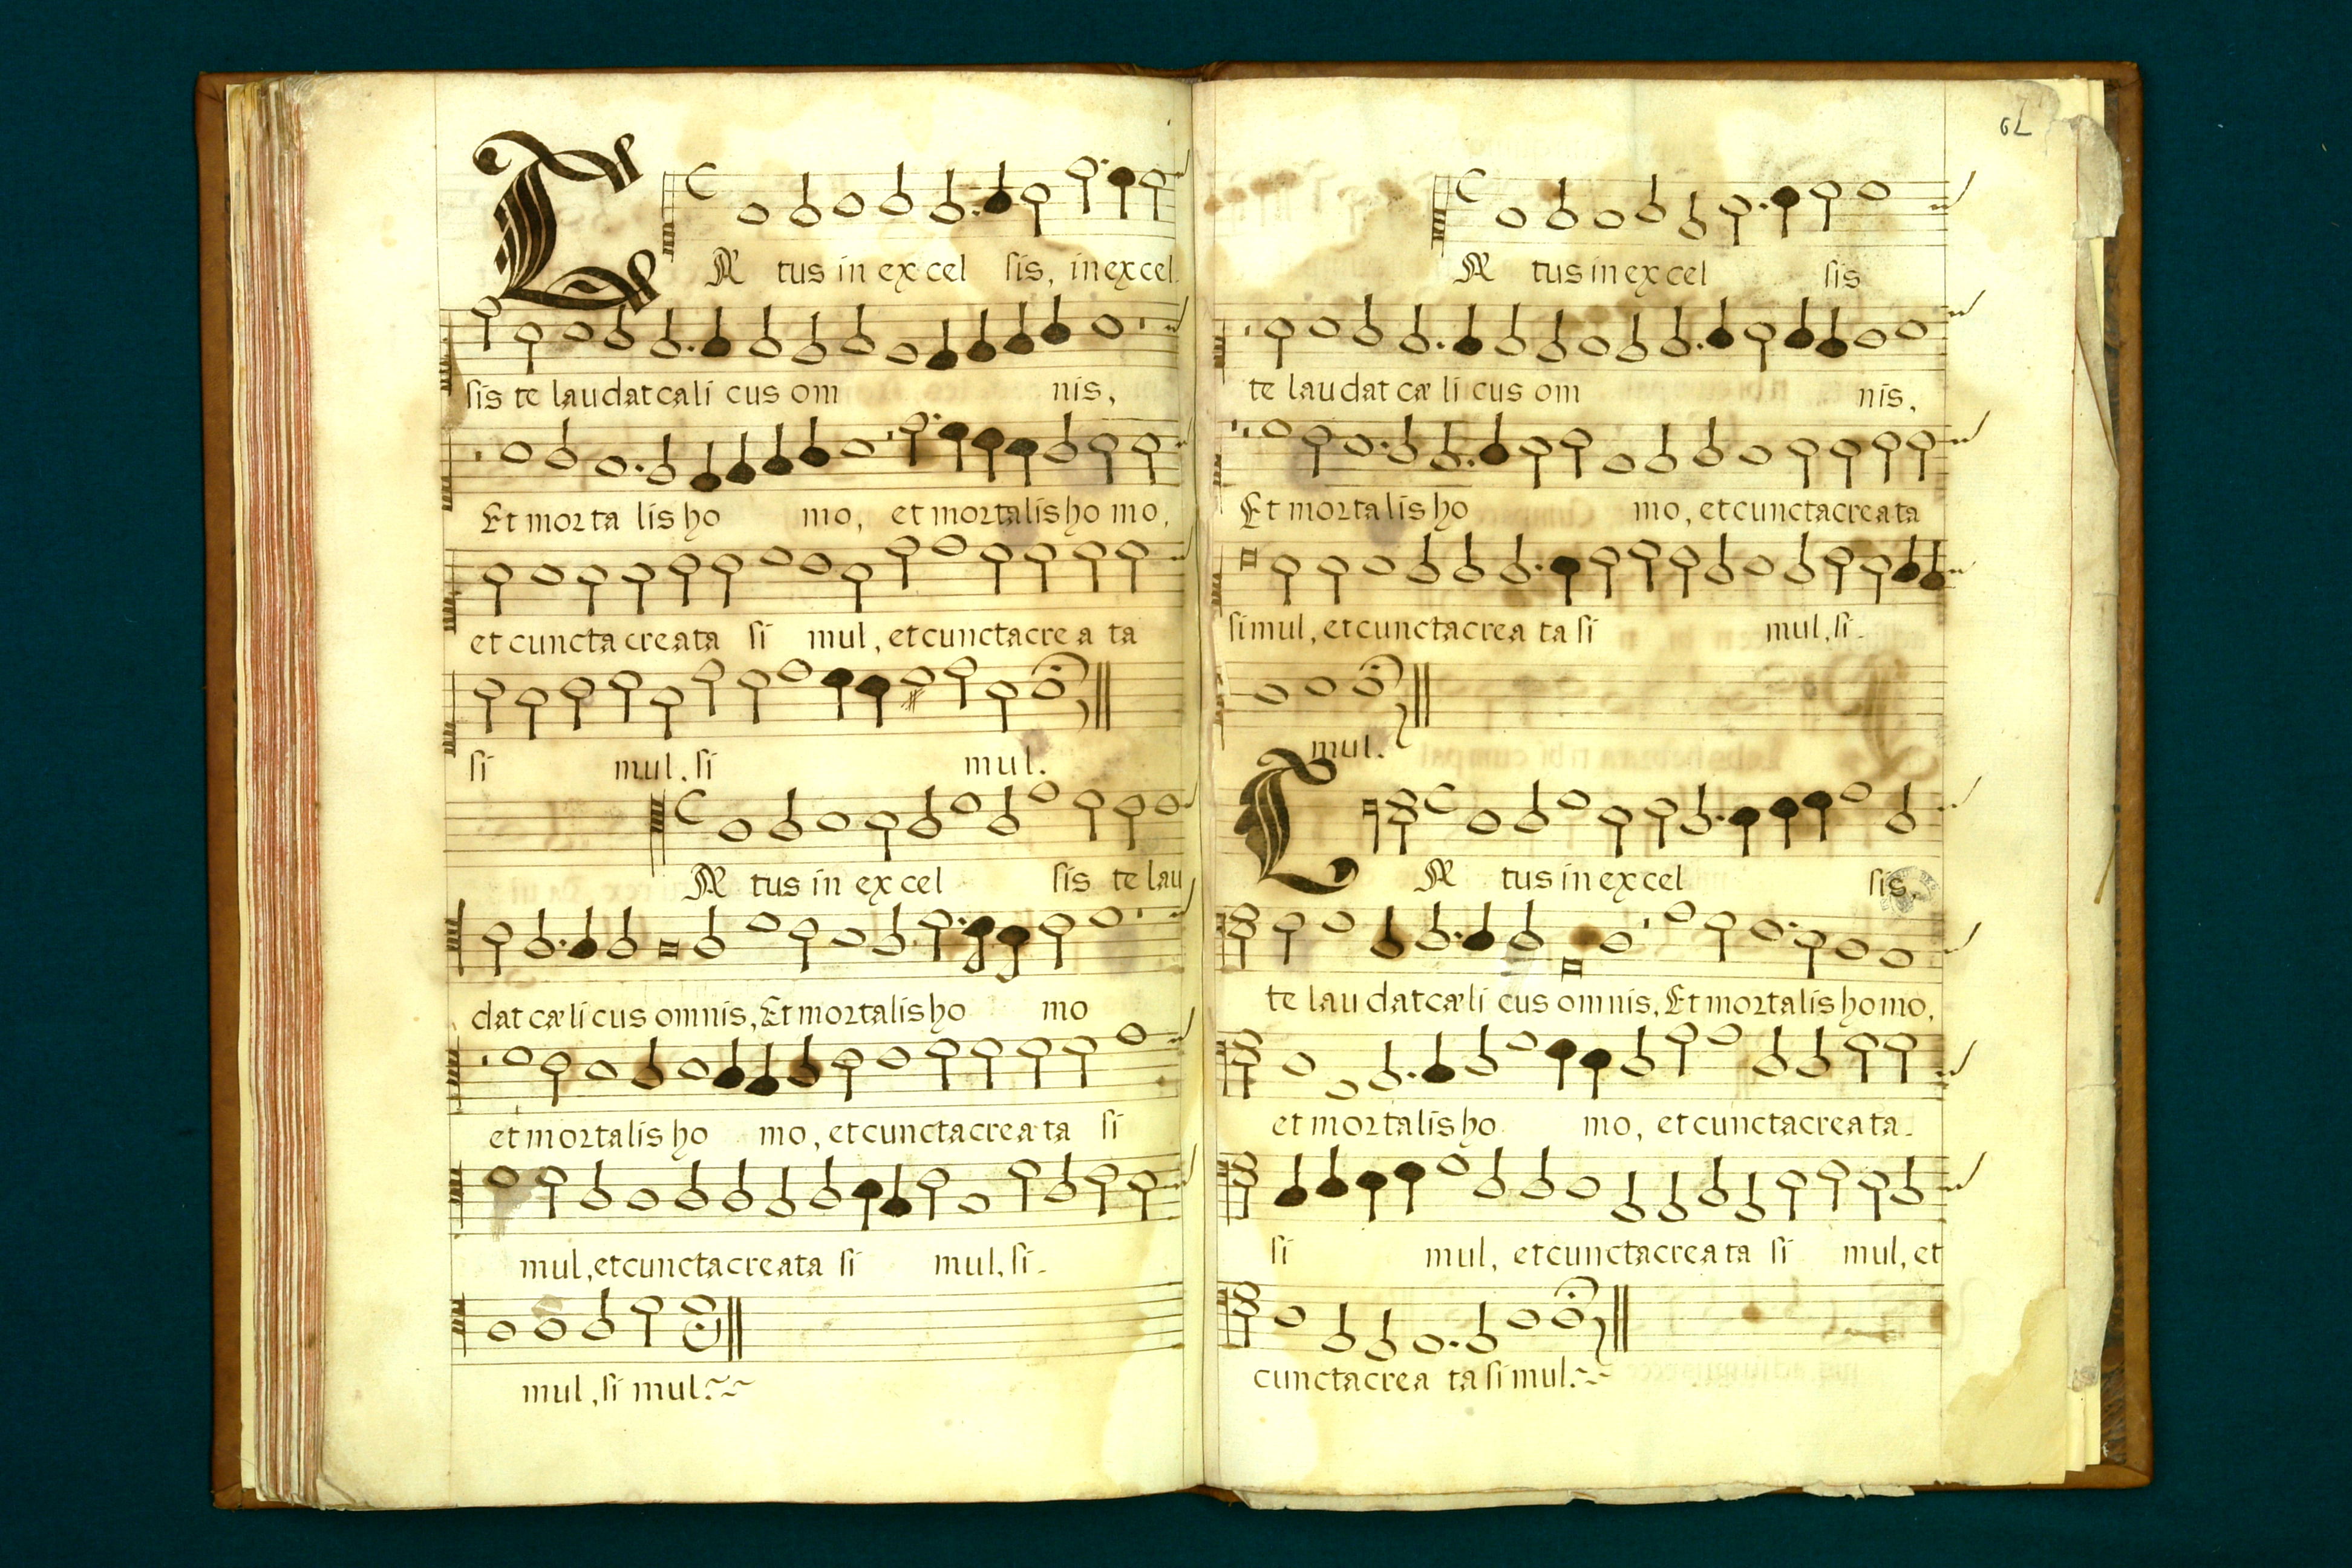 CÆtus in excel sis, in excel
sis te laudat cali cus om nis,
Et morta lis ho mo, et mortalis ho mo,
et cuncta creata si mul, et cuncta cre a ta
si mul. si mul.
Æ tus in ex cel sis te lau
dat cæli cus omnis, Et mortalis ho mo
et mortalis ho mo, et cuncta crea ta si
mul, et cuncta creata si mul, si
mul, si mul.
Æ tus in excel sis
te laudat cæ li cus om nis,
Et mortalis ho mo, et cuncta creata
simul, et cuncta crea ta si mul, si
mul.
CÆ tus in ex cel sis,
te lau dat cæli cus omnis, Et mortalis homo,
et mortalis ho mo, et cuncta crea ta
si mul, et cuncta crea ta si mul, et
cuncta crea ta si mul.